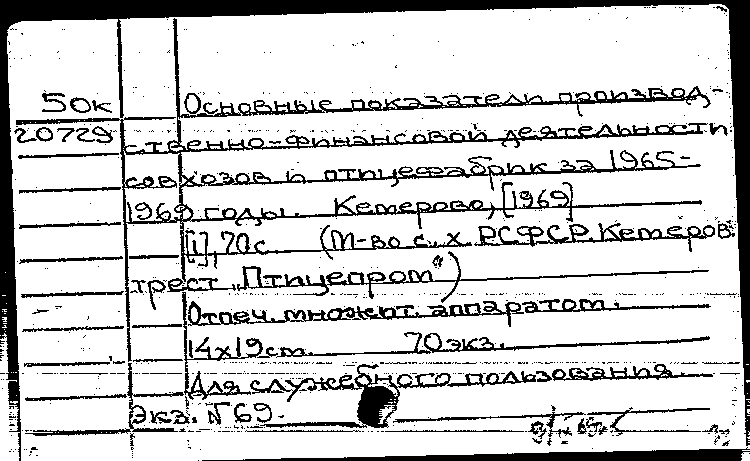 50к Основные показатели производ-
20729 ственно-финансовой деятельности
совхозов и птицефабрик за 1965-
1969 годы. Кемерово, [1969]
[1], 70с (М-во с. х. РСФСР. Кемеров.
трест „Птицепром")
Отпеч. множит. аппаратом.
14х19см. 70экз.
Для служебного пользования.
Экз. №69.